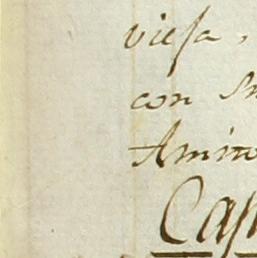 viesa,
con su
Amino
Cap